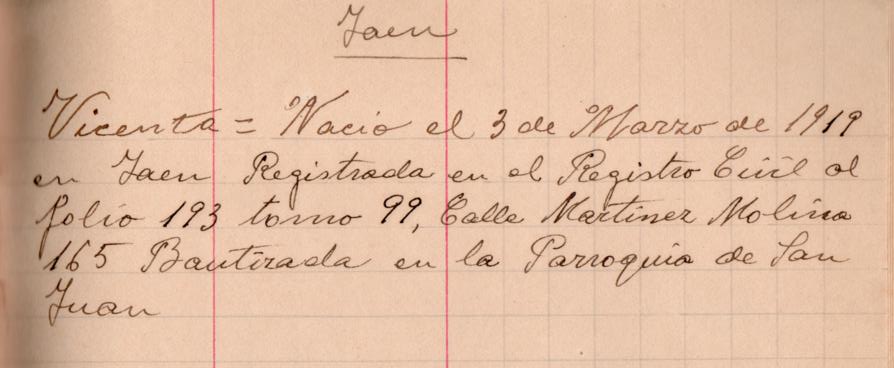 Jaen
Vicenta = Nacio el 3 de Marzo de 1919
en Jaen Registrada en el Registro Civil al
folio 193 tomo 99, Calle Martinez Molina
165 Bautizada en la Parroquia de San
Juan